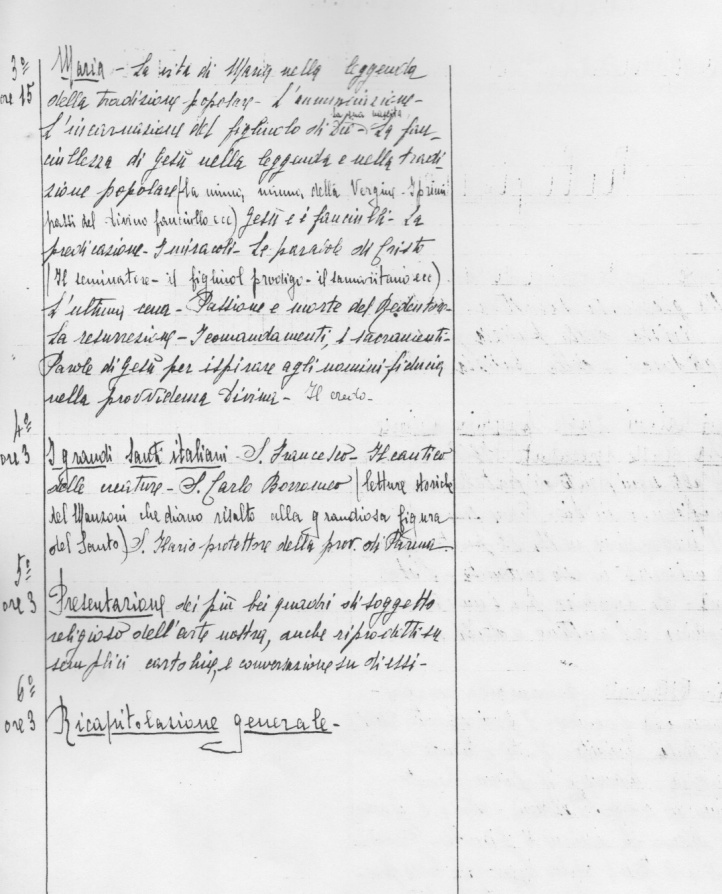 3º Maria - La vita di Maria nella leggenda
ore 15 della tradizione popolare - L'annunciazione -
L'incarnazione del figliuolo di Dio - La fan-
ciullezza di Gesù nella leggenda e nella tradi-
zione popolare (la ninna nanna della Vergine - I primi
passi del divino fanciullo ecc) Gesù e i fanciulli - La
predicazione - I miracoli - Le parabole di Cristo
(Il seminatore - il figliuol prodigo - il samaritano ecc)
L'ultima cena - Passione e morte del Redentore -
La resurrezione - I comandamenti, i sacramenti -
Parole di Gesù per ispirare agli uomini fiducia
nella provvidenza divina - Il credo -
4º
ore 3 I grandi Santi italiani - S. Francesco - Il cantico
delle creature - S. Carlo Borromeo (letture storiche
del Manzoni che diano risalto alla grandiosa figura
del Santo) S. Ilario protettore della prov. di Parma -
5º
ore 3 Presentazione dei più bei quadri di soggetto
religioso dell'arte nostra, anche riprodotti su
semplici cartoline, e conversazione su di essi -
6º
ore 3 Ricapitolazione generale -